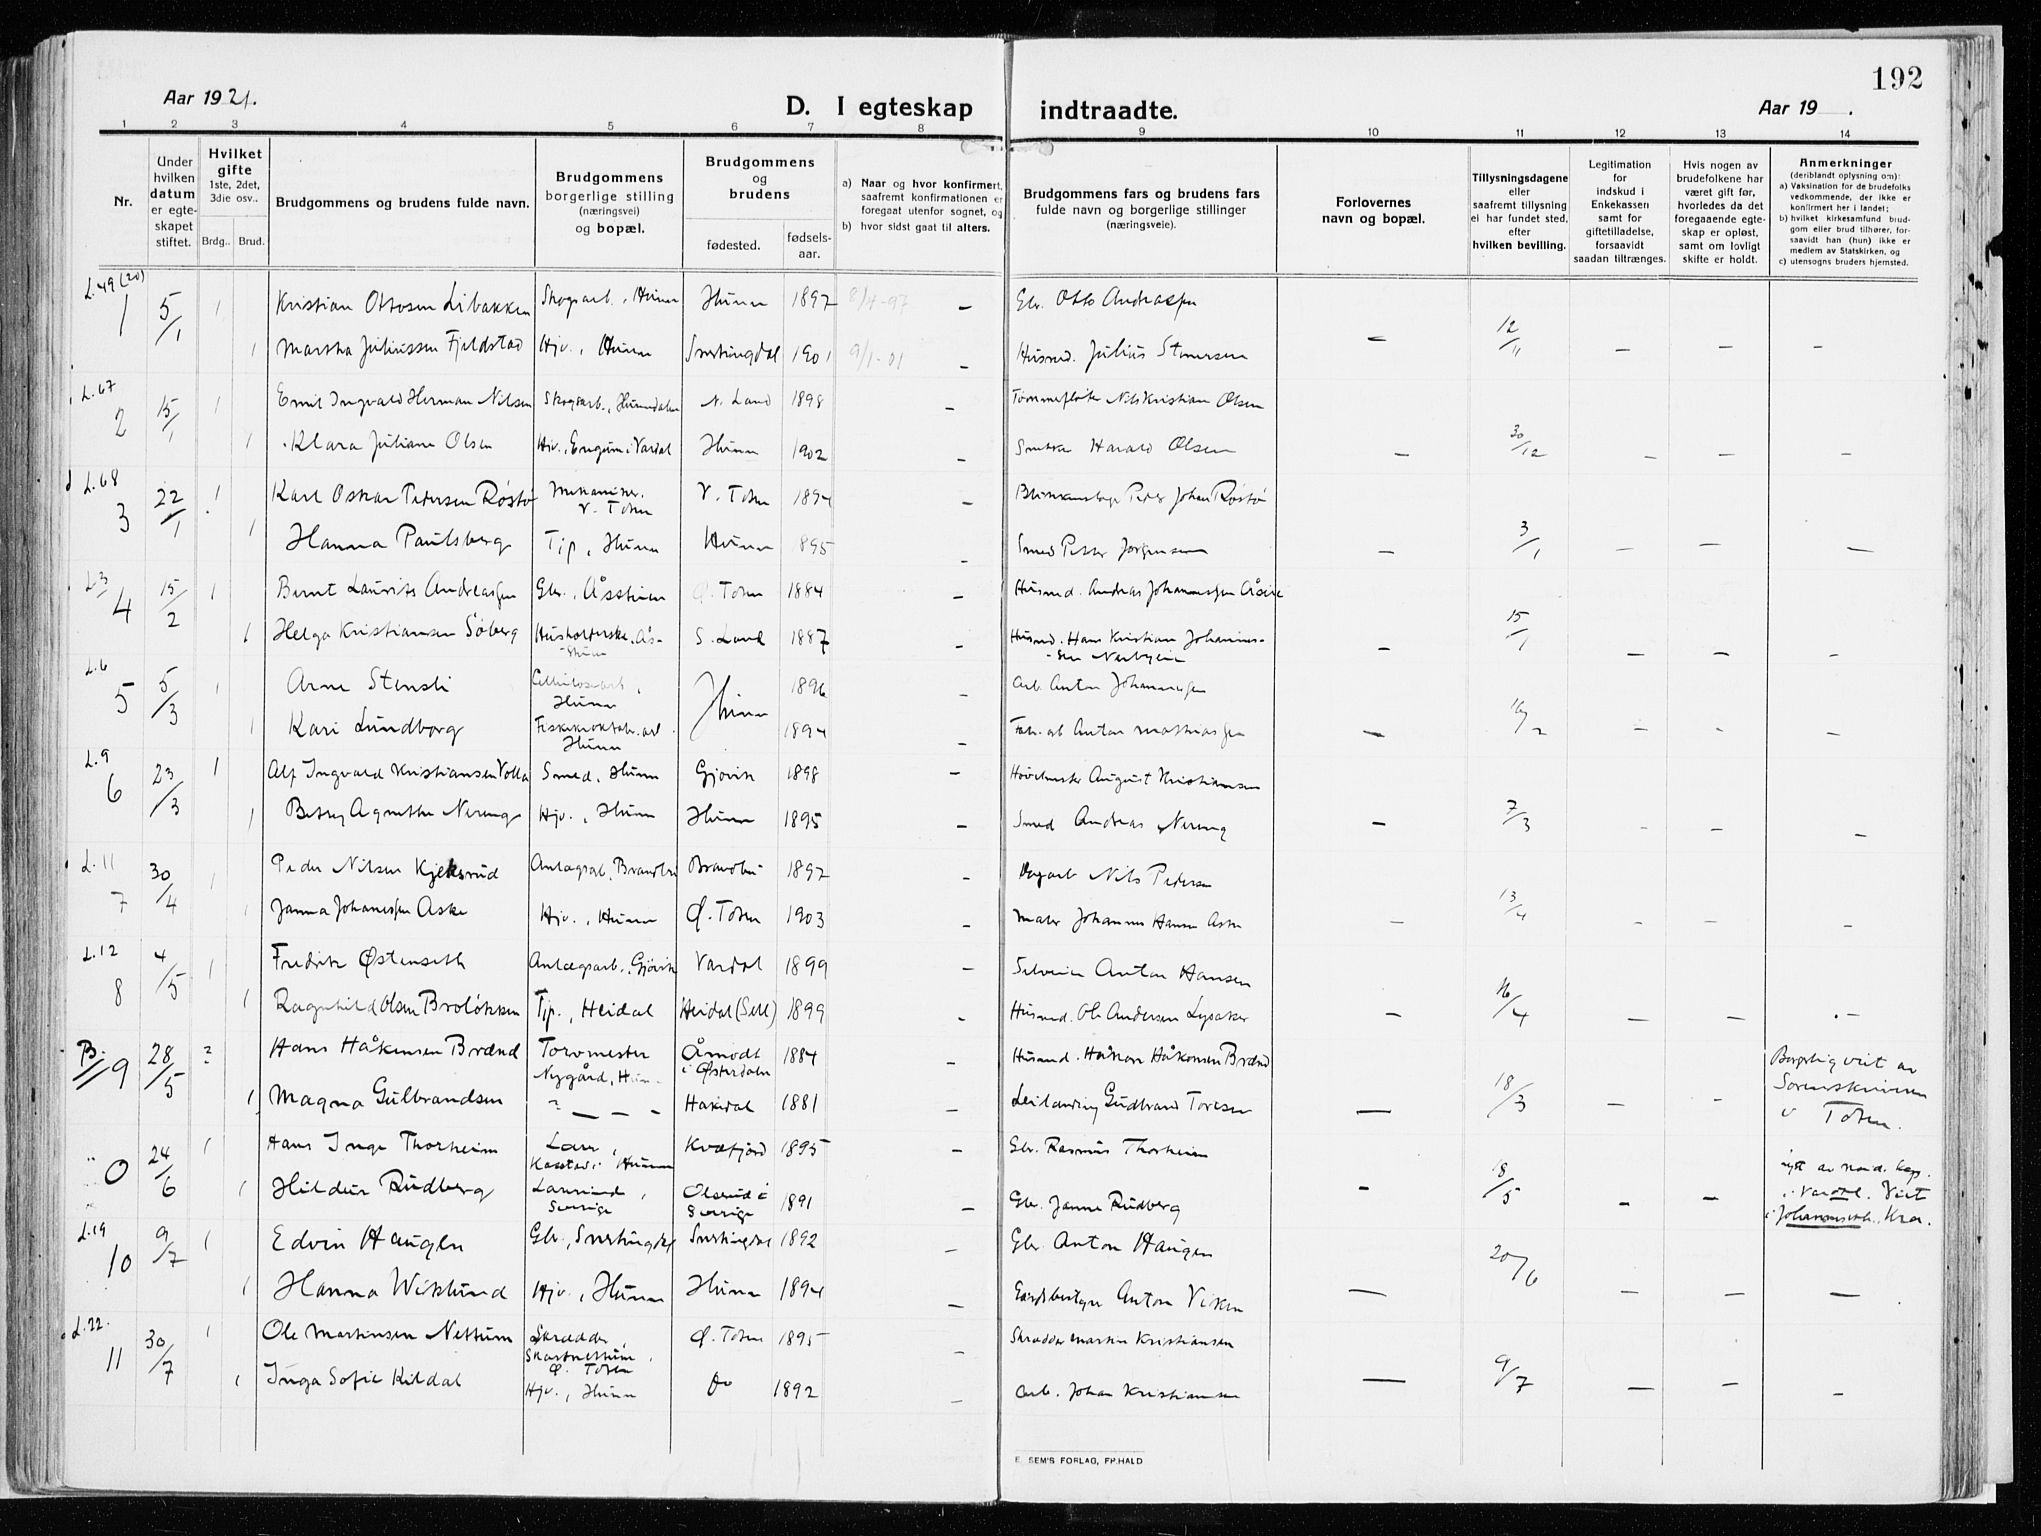 192
Aar 1921.
D. I egteskap indtraadte.
Aar 19 .
1 2 3 4 5 6 7 8 9 10 11 12 13 14
Nr.
Under hvilken datum er egte-skapet stiftet.
Hvilket gifte
1ste, 2det, 3die osv..
Brdg.. Brud.
Brudgommens og brudens fulde navn.
Brudgommens borgerlige stilling (næringsvei) og bopæl.
Brudgommens og brudens
fødested. fødsels-aar.
a) Naar og hvor konfirmert, saafremt konfirmationen er foregaat utenfor sognet, og
b) hvor sidst gaat til alters.
Brudgommens fars og brudens fars fulde navn og borgerlige stillinger (næringsveie).
Forlovernes navn og bopæl.
Tillysningsdagene eller saafremt tillysning ei har fundet sted, efter hvilken bevilling.
Legitimation for indskud i Enkekassen samt for giftetilladelse, forsaavidt saadan tiltrænges.
Hvis nogen av brudefolkene har været gift før, hvorledes da det foregaaende egte-skap er opløst, samt om lovligt skifte er holdt.
Anmerkninger (deriblandt oplysning om):
a) Vaksination for de brudefolks vedkommende, der ikke er konfirmert her i landet;
b) hvilket kirkesamfund brud-gom eller brud tilhører, for-saavidt han (hun) ikke er medlem av Statskirken, og
c) utensogns bruders hjemsted.
L. 49 (20)
1 5/1 1 Kristian Ottosen Libakken Skogsarb., Hunn Hunn 1897 8/4-97 – Gbr. Otto Andreassen
1 Martha Juliussen Fjeldstad Hjv., Hunn Snertingdal 1901 9/1-01 – Husmd. Julius Simensen – 12/11 – – –
L. 67
2 15/1 1 Emil Ingvald Herman Nilsen Skogsarb., Hunndalen N. Land 1898 – Tømmerfløter Nils Kristian Olsen
1 Klara Juliane Olsen Hjv., Engum i Vardal Hunn 1902 – Harald Olsen – 30/12 – – –
L. 68
3 22/1 1 Karl Oskar Pedersen Røstø Mekaniker, V. Toten V. Toten 1894 – Blikkenslager Peder Johan Røstø
1 Hanna Paulsberg Tjp., Hunn Hunn 1895 – Smed Petter Jørgensen – 3/1 – – –
L. 3
4 15/2 1 Bernt Laurits Andreassen Gbr., Åsstuen Ø. Toten 1884 – Husmd. Andreas Johannessen
1 Helga Kristiansen Søberg Husholderske, Ås-stuen S. Land 1887 – Husmd. Hans Kristian Johannes-sen – 15/1 – – –
L. 6
5 5/3 1 Arne Stensli Cellulosearb., Hunn Hunn 1896 – Arb. Anton Johannessen
1 Kari Lundborg Fiskekrokfabr. arb. Hunn 1894 – Fab. arb Anton Mathiassen – 16/2 – – –
L. 9
6 23/3 1 Alf Ingvald Kristiansen Volla Smed, Hunn Gjøvik 1898 – August Kristiansen
1 Betsy Agnethe Nereng Hjv., Hunn Hunn 1895 – Smed Andreas Nereng – 7/3 – – –
L. 11
7 30/4 1 Peder Nilsen Kjeksrud Anlægsarb, Brandbu Brandbu 1897 – Dagarb Nils Pedersen
1 Janna Johannessen Aske Hjv., Hunn Ø. Toten 1903 – Maler Johannes Hansen Aske – 13/4 – – –
L. 12
8 4/5 1 Fredrik Østenseth Anlægsarb., Gjøvik Vardal 1899 – Selveier Anton Hansen
1 Ragnhild Olsen Broløkken Tjp., Heidal Heidal (Sell) 1899 – Husmd. Ole Andersen Lysaker – 16/4 – – –
B.
9 28/5 2 Hans Håkensen Brænd Torvmester Nygård, Hunn Åmodt i Østerdalen 1884 Husmd. Håkon Håkonsen Brænd
1 Magna Gulbrandsen – – – Hakadal 1881 – Leilænding Gudbrand Toresen – 18/3 – – Borgerlig viet av Sorenskriveren v Toten.
0 24/6 1 Hans Inge Thorheim Lærer, Kasstad i Hunn Kvæfjord 1895 – Gbr. Rasmus Thorheim
1 Hildur Rudberg Lærerinde, Sverige Olserud i Sverige 1891 – Gbr. Janne Rudberg – 18/5 – – lyst av res. kap. i Vardal. Viet i Johanneskk., Kra.
L. 19
10 9/7 1 Edvin Haugen Gbr., Snertingdal Snertingdal 1892 – Gbr. Anton Haugen
1 Hanna Wiklund Hjv., Hunn Hunn 1894 – Gårdsbestyrer Anton Viken – 20/6 – – –
L. 22.
11 30/7 1 Ole Martinsen Nettum Skrædder, Skartnettum, Ø. Toten Ø. Toten 1895 – Skrædder Martin Kristiansen
1 Inga Sofie Kildal Hjv., Hunn do 1892 – Arb. Johan Kristiansen – 9/7 – – –
E. SEM'S FORLAG, FR.HALD